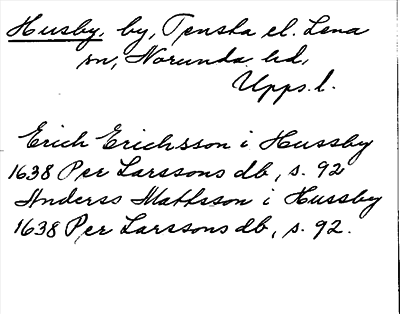 Husby, by, Tensta el. Lena
sn, Norunda hd,
Upps. l.
Erich Erichsson i Hussby
1638 Per Larssons db, s. 92
Anderss Mattsson i Hussby
1638 Per Larssons db, s. 92.